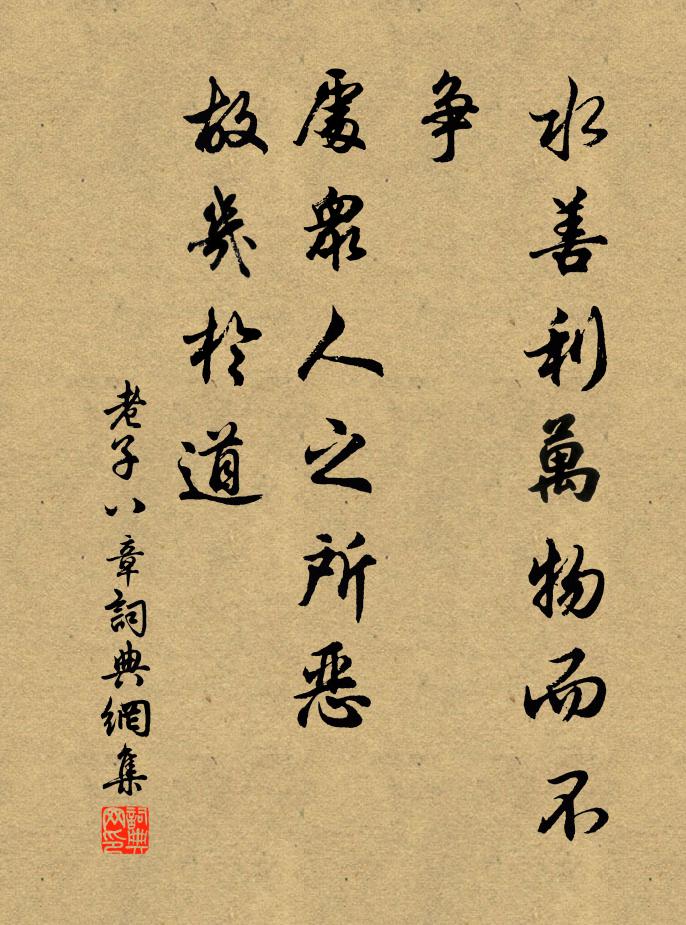 水善利萬物而不
争
處眾人之所惡
故幾於道
老子八章詞典網集
詞典网印